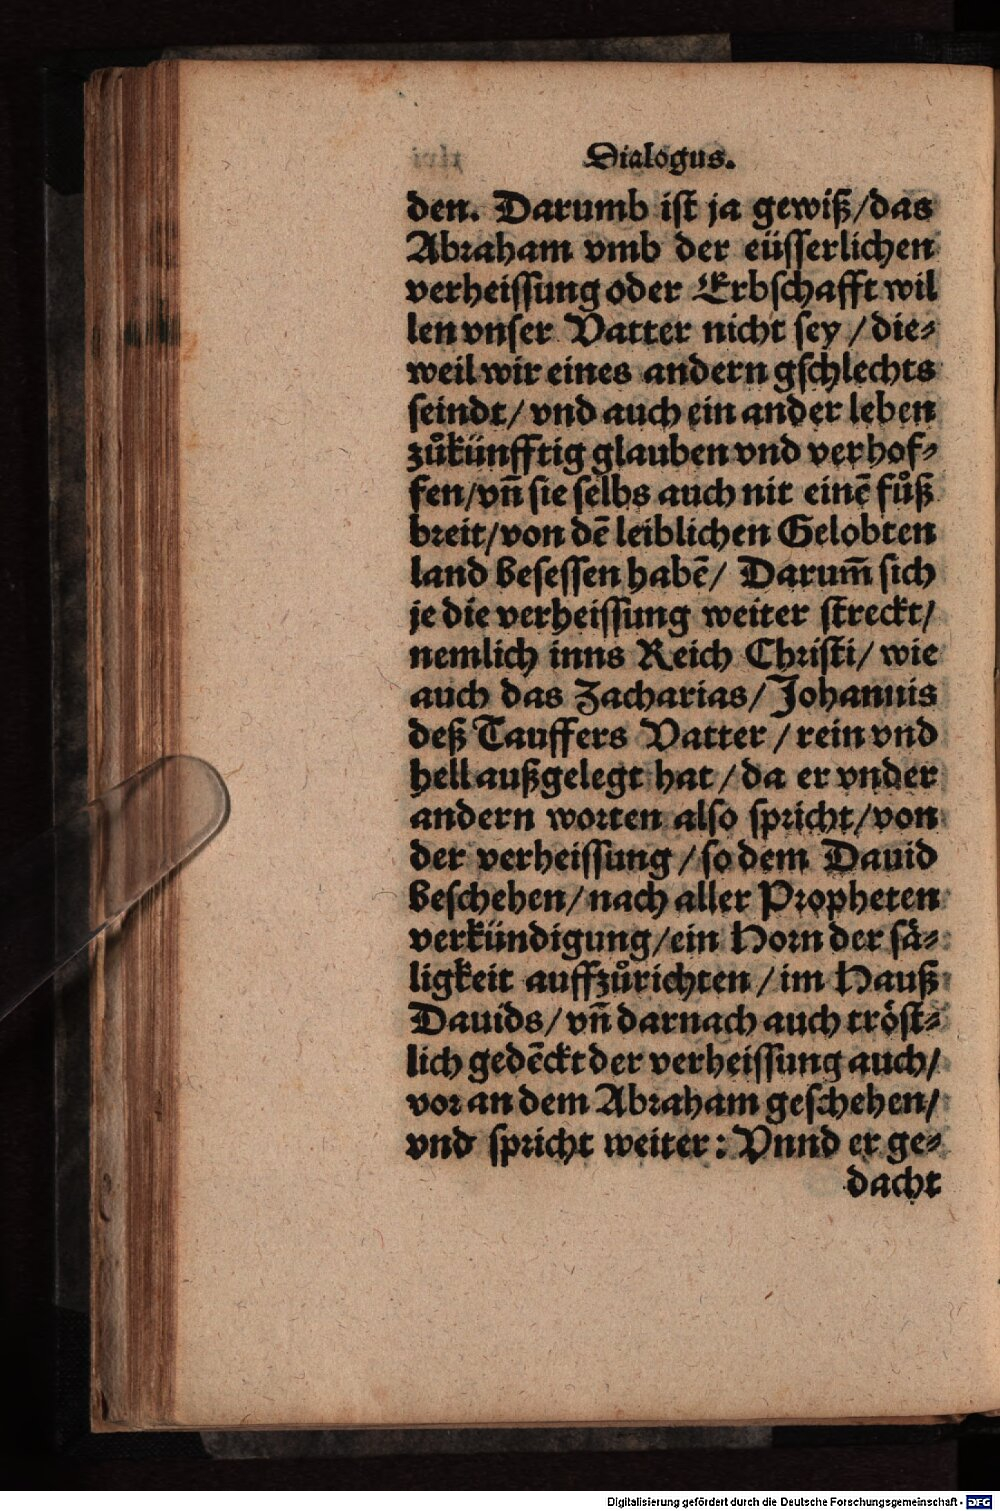 Dialogus.
den. Darumb ist ja gewiß/das
Abraham vmb der eüsserlichen
verheissung oder Erbschafft wil
len vnser Vatter nicht sey / die⸗
weil wir eines andern gschlechts
seindt/ vnd auch ein ander leben
zuͦkünfftig glauben vnd verhof⸗
fen/vn̄ sie selbs auch nit einē fuͦß
breit/von dē leiblichen Gelobten
land besessen habē/ Darum̄ sich
je die verheissung weiter streckt/
nemlich inns Reich Christi/ wie
auch das Zacharias/ Johannis
deß Tauffers Vatter / rein vnd
hell außgelegt hat / da er vnder
andern worten also spricht/von
der verheissung / so dem Dauid
beschehen/ nach aller Propheten
verkündigung/ein Horn der sä⸗
ligkeit auffzuͦrichten / im Hauß
Dauids/ vn̄ darnach auch tröst⸗
lich gedēckt der verheissung auch/
vor an dem Abraham geschehen/
vnd spricht weiter: Vnnd er ge⸗
dacht
Digitalisierung gefördert durch die Deutsche Forschungsgemeinschaft - DFG